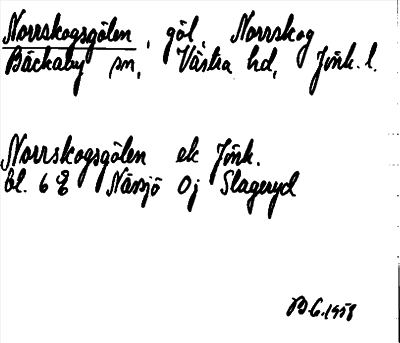 Norrskogsgölen, göl, Norrskog
Bäckaby sn, Västra hd, Jönk. l.
Norrskogsgölen ek Jönk.
bl. 6 Nässjö Oj Slageryd
1958